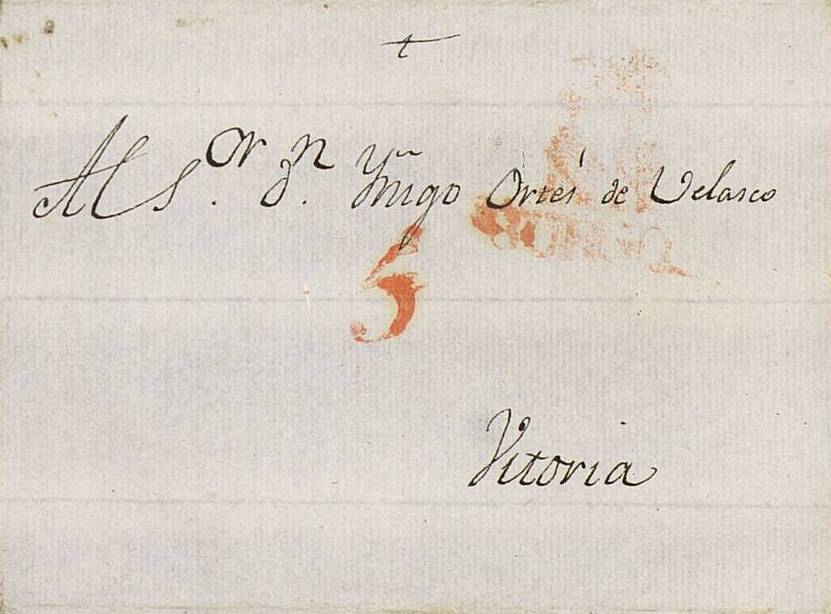 †
Al S.or D.n Yñigo Ortés de Velasco
5
Vitoria